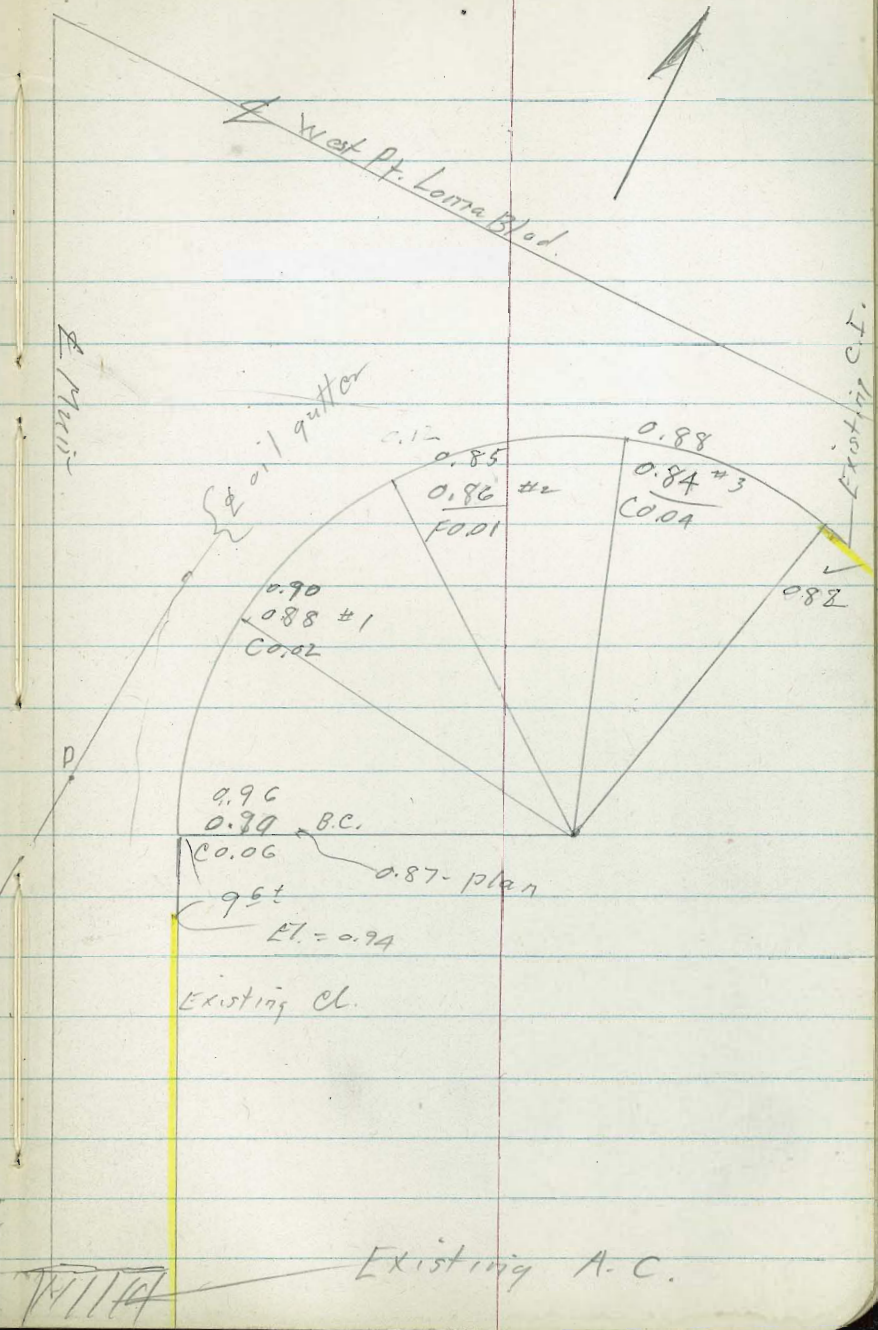 ℄ West Pt. Loma Blvd.
℄ Muir
Existing C.I.
℄ oil gutter
0.88
0.84 #3
C0.04
0.85
0.86 #2
F0.01
0.82
0.90
0.88 #1
C0.02
P
0.96
0.90 B.C.
C0.06
0.87-plan
9 6 ±
El. = 0.94
Existing Cl.
Existing A.C.